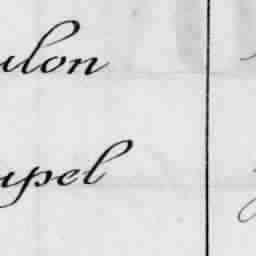 ulon
upel